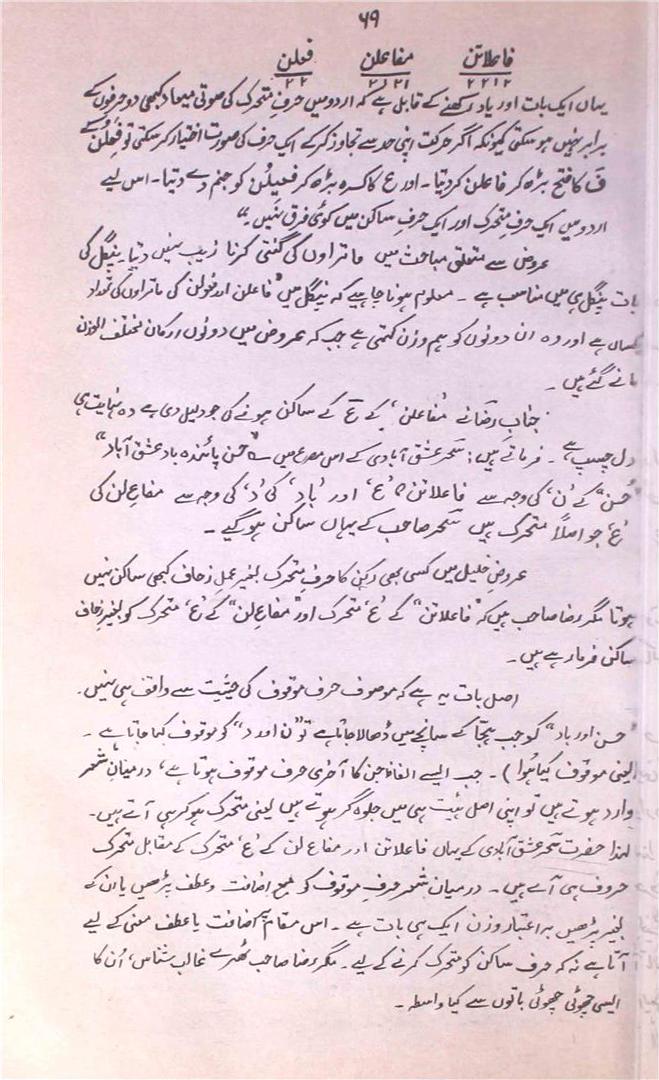 ۶۹
فاعلاتن مفاعلن فعلن
۲۲۱۲ ۲۱۲۱ ۲۲
یہاں ایک بات اور یاد رکھنے کے قابل ہے کہ اردو میں حرفِ متحرک کی صوتی میعاد کبھی دو حرفوں کے
برابر نہیں ہو سکتی کیونکہ اگر حرکت اپنی حد سے تجاوز کر کے ایک حرف کی صورت اختیار کر سکتی تو فَعِلُن کے
فَ کا فتح بڑھ کر فاعلن کر دیتا۔ اور ع کا کسرہ بڑھ کر فعیلُن کو جنم دے دیتا۔ اس لیے
اردو میں ایک حرفِ متحرک اور ایک حرفِ ساکن میں کوئی فرق نہیں ہے"
عروض سے متعلق مباحث میں ماتراوں کی گنتی کرنا زیب نہیں دیتا پنگل کی
بات پنگل ہی میں مناسب ہے ۔ معلوم ہونا چاہیے کہ پنگل میں "فاعلن اور فعولن کی ماتراوں کی تعداد
یکساں ہے اور وہ ان دونوں کو ہم وزن کہتی ہے جب کہ عروض میں دونوں ارکان مختلف الوزن
مانے گئے ہیں ۔
جناب رضا نے 'مفاعلن' کے ع کے ساکن ہونے کی جو دلیل دی ہے وہ نہایت ہی
دل چسپ ہے ۔ فرماتے ہیں: سحر عشق آبادی کے اس مصرع میں ؎ "حسن پائندہ باد عشق آباد"
"حُسن" کے 'ن' کی وجہ سے فاعلاتن کا 'ع' اور 'باد' کی 'د' کی وجہ سے مفاع لن کی
'ع' جو اصلاً متحرک ہیں سحر صاحب کے یہاں ساکن ہو گیے ۔
عروضِ خلیل میں کسی بھی رکن کا حرفِ متحرک بغیر عملِ زحاف کبھی ساکن نہیں
ہوتا مگر رضا صاحب ہیں کہ "فاعلاتن" کے 'ع' متحرک اور "مفاع لن" کے 'ع' متحرک کو بغیر زحاف
ساکن فرما رہے ہیں ۔
اصل بات یہ ہے کہ موصوف حرف موقوف کی حیثیت سے واقف ہی نہیں۔
"حسن اور باد" کو جب ہجّا کے سانچے میں ڈھالا جاتا ہے تو "ن اور د" کو موقوف کہا جاتا ہے ۔
(یعنی موقوف کیا ہُوا) ۔ جب ایسے الفاظ جن کا آخری حرف موقوف ہوتا ہے، درمیانِ شعر
وارد ہوتے ہیں تو اپنی اصل ہئیت ہی میں جلوہ گر ہوتے ہیں یعنی متحرک ہو کر ہی آتے ہیں۔
لہٰذا حضرت سحر عشق آبادی کے یہاں فاعلاتن اور مفاع لن کے 'ع' متحرک کے مقابل متحرک
حروف ہی آے ہیں ۔ درمیان شعر حرفِ موقوف کو مع اضافت و عطف پڑھیں یا ان کے
بغیر پڑھیں بہ اعتبار وزن ایک ہی بات ہے ۔ اس مقام پر اضافت یا عطف معنی کے لیے
آتا ہے نہ کہ حرف ساکن کو متحرک کرنے کے لیے۔ مگر رضا صاحب ٹھہرے غالب شناس، اُن کا
ایسی چھوٹی چھوٹی باتوں سے کیا واسطہ ۔